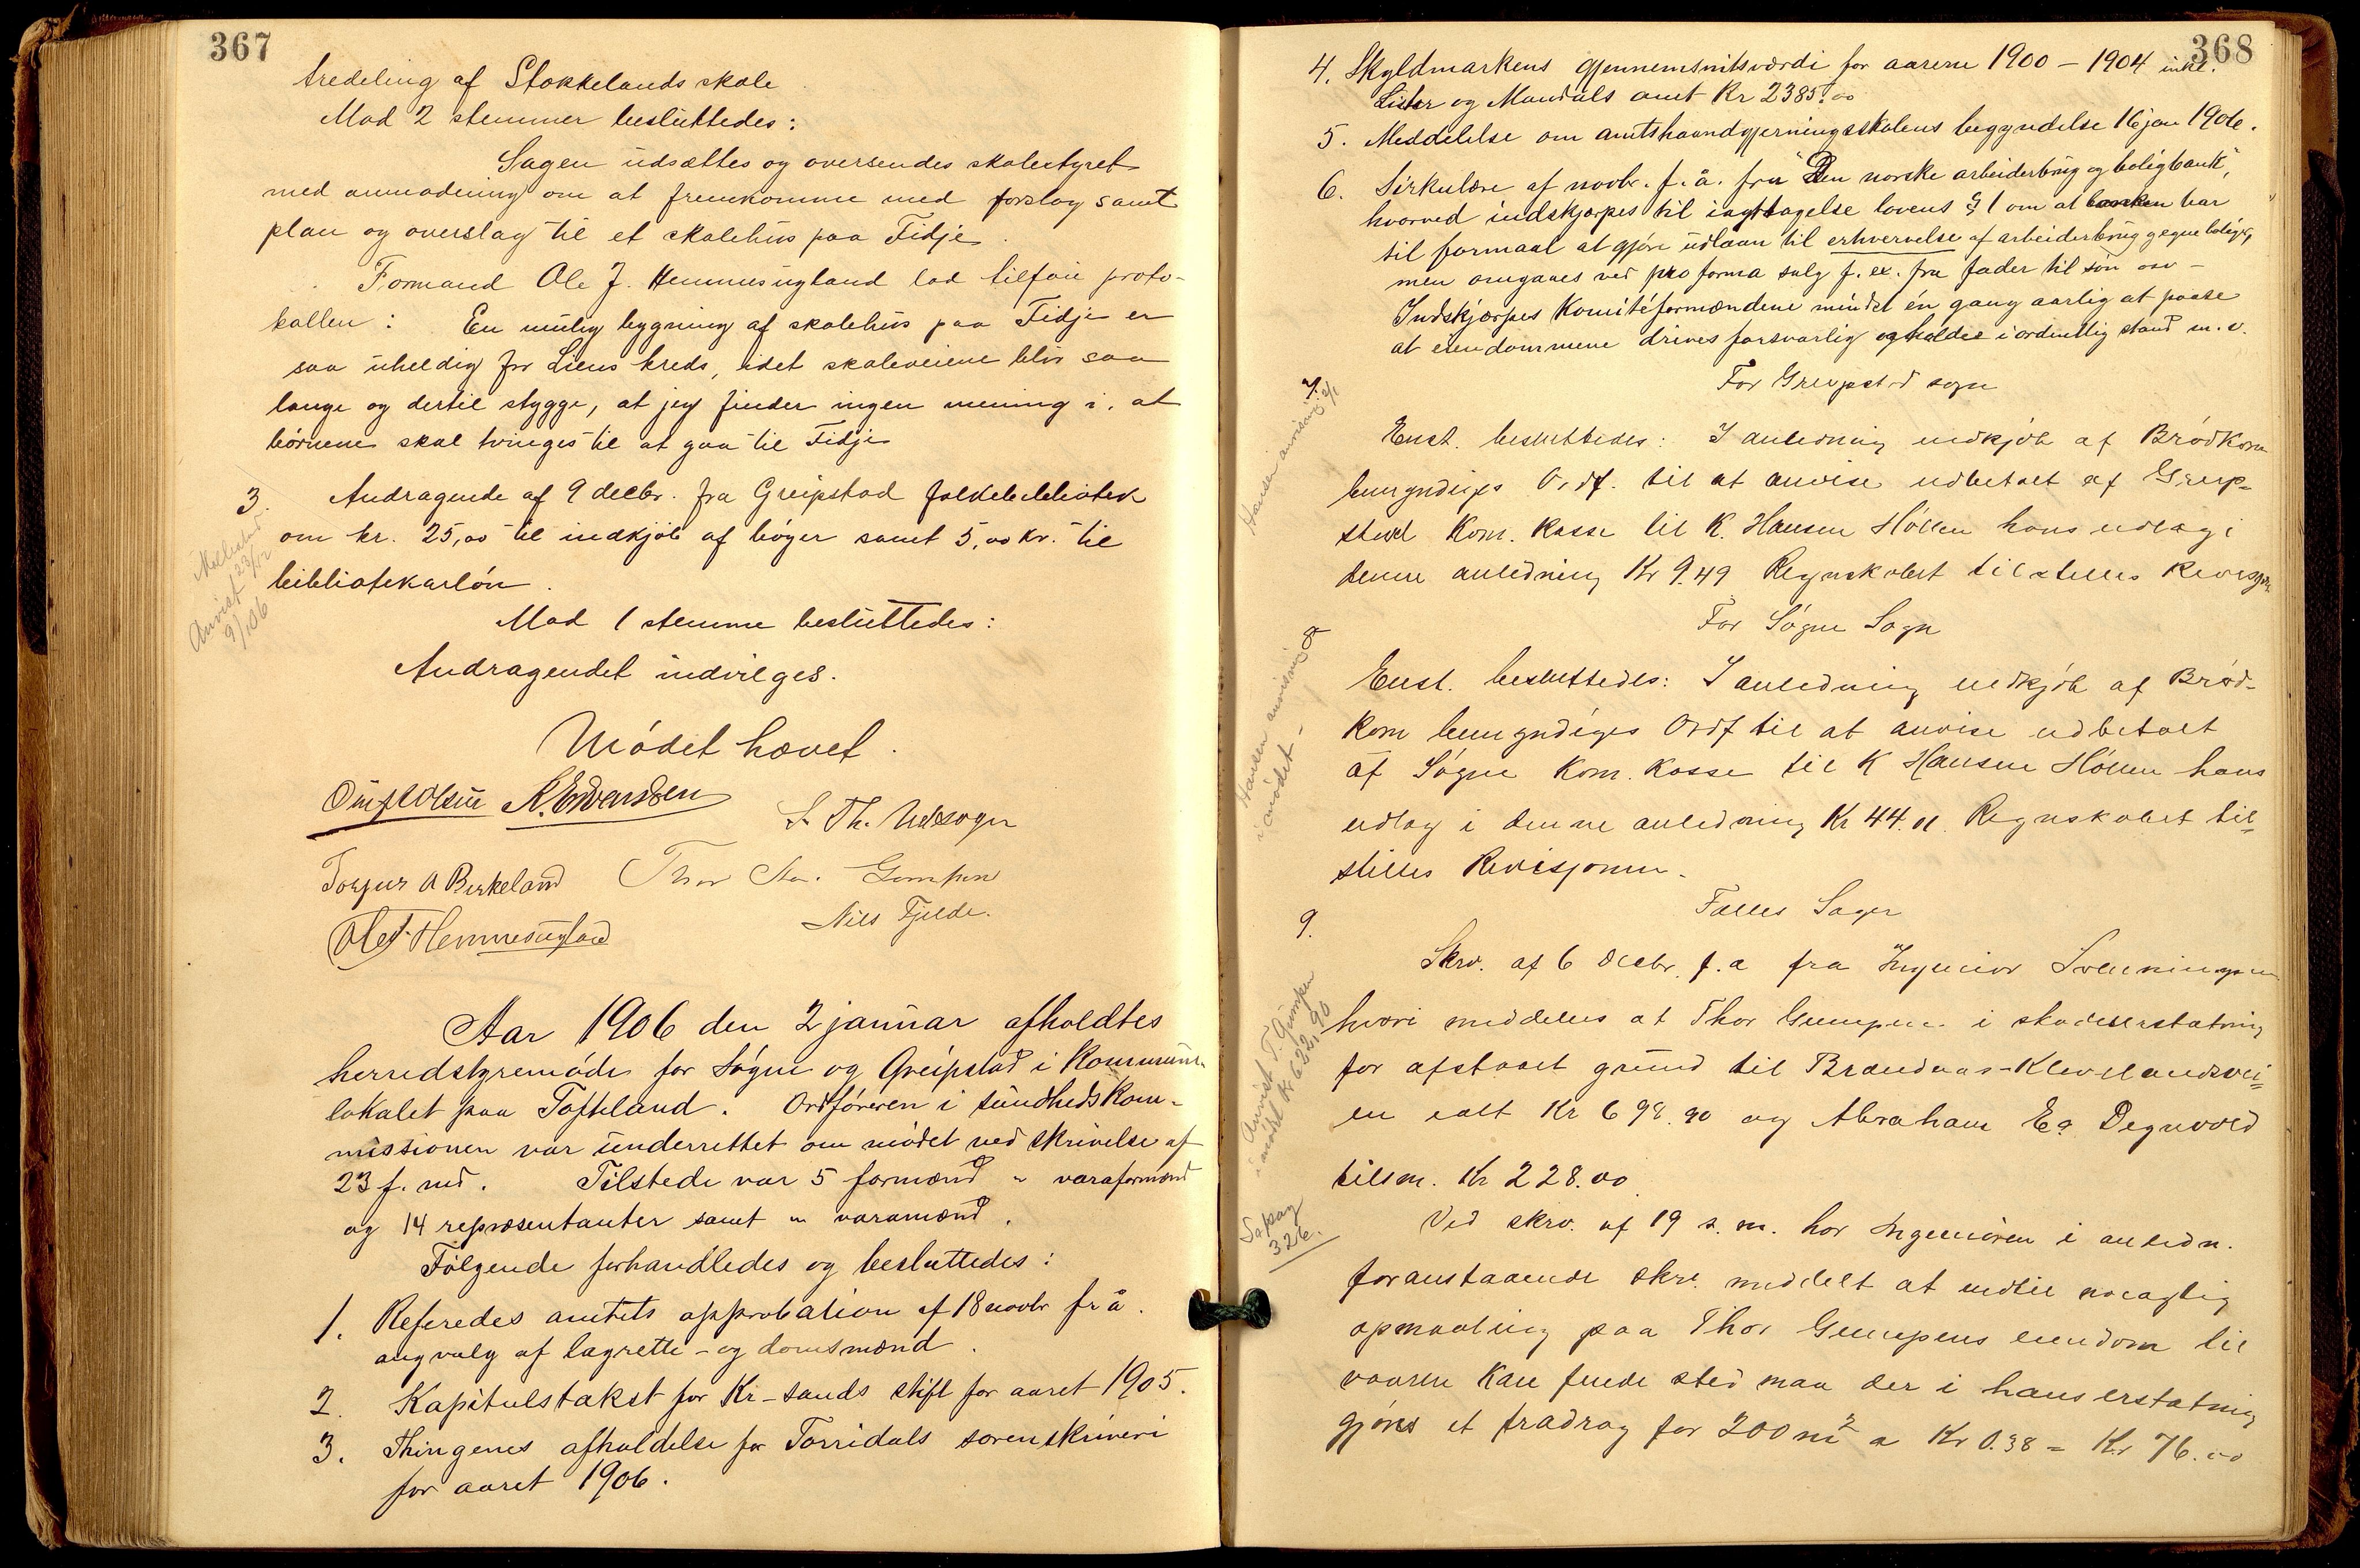 367
tredeling af Stokkelands skole
Mod 2 stemmer besluttedes:
Sagen udsættes og oversendes skolestyret
med anmodning om at fremkomme med forslag samt
plan og overslag til et skolehus paa Fidje.
Formand Ole J. Hemmesugland lod tilføie proto-
kollen: En mulig bygning af skolehus paa Fidje er
saa uheldig for Liens kreds, idet skoleveiene blir saa
lange og dertil stygge, at jeg finder ingen mening i, at
børnene skal tvinges til at gaa til Fidje
3. Andragende af 9 decbr. fra Greipstad folkebibliotek
om kr. 25,00 til indkjøb af bøger samt 5,00 kr. til
bibliotekarløn.
Meddelt 23/12
Anvist 9/1 06
Mod 1 stemme besluttedes:
Andragendet indvilges.
Mødet hævet.
K. Edvardsen
S. Th. Udsogn
Torjus A Birkeland Thor Aa. Gumpen
Ole J. Hemmesugland
Nils Fjelde.
Aar 1906 den 2 januar afholdtes
herredstyremøde for Søgne og Greipstad i Kommune-
lokalet paa Tofteland. Ordføreren i sundhedskom-
missionen var underrettet om mødet ved skrivelse af
23 f. md. Tilstede var 5 formænd " varaformænd
og 14 repræsentanter samt " varamænd.
Følgende forhandledes og besluttedes:
1. Referedes amtets approbation af 18 novbr f. å.
ang valg af lagrette- og domsmænd.
2. Kapitulstakst for Kr-sands stift for aaret 1905.
3. Thingenes afholdelse for Torridals sorenskriveri
for aaret 1906.
368
4. Skyldmarkens gjennemsnitsværdi for aarene 1900 – 1904 inkl.
Lister og Mandals amt Kr 2385.00
5. Meddelelse om amtshaandgjerningsskolens begyndelse 16 jan 1906.
6. Sirkulære af novbr. f. å. fra "Den norske arbeiderbrug og boligbank",
hvorved indskjærpes til iagttagelse lovens § 1 om at banken har
til formaal at gjøre udlaan til erhvervelse af arbeiderbrug og egne boliger,
men omgaaes ved pro forma salg f. ex. fra fader til søn osv –
Indskjærpes Komitéformændene mindst én gang aarlig at paase
at eiendommene drives forsvarlig og holdes i ordentlig stand m. v.
For Greipstad sogn
7.
Hansen anvisning 2/1
Enst. besluttedes: I anledning indkjøb af Brødkorn
bemyndiges Ordf. til at anvise udbetalt af Greip-
stad Kom. Kasse til K. Hansen Høllen hans udlæg i
denne anledning Kr 9.49 Regnskabet tilstilles Revisjon
For Søgne Sogn
8
Hansen anvisning
i mødet –
Enst. besluttedes: I anledning indkjøb af Brød-
korn bemyndiges Ordf til at anvise udbetalt
af Søgne Kom. Kasse til K Hansen Høllen hans
udlæg i denne anledning Kr 44.01 Regnskabet til-
stilles Revisjonen.
Fælles Sager
9.
Anvist T. Gumpen
i mødet Kr 622,90
Skrv. af 6 decbr. f. a fra Ingeniør Svenningsen
hvori meddeles at Thor Gumpen i skadeserstatning
for afstaaet grund til Brandnas-Klevelandsvei-
en ialt Kr 698.90 og Abraham Ea Degnvold
tilsm. Kr 228.00
Se pag
326.
Ved skrv. af 19 s. m. har Ingeniøren i anledn.
foranstaaende skr. meddelt at indtil nøiagtig
opmaaling paa Thor Gumpens eiendom til
vaaren kan finde sted maa der i hans erstatning
gjøres et fradrag for 200 m² a Kr 0.38 = Kr 76.00